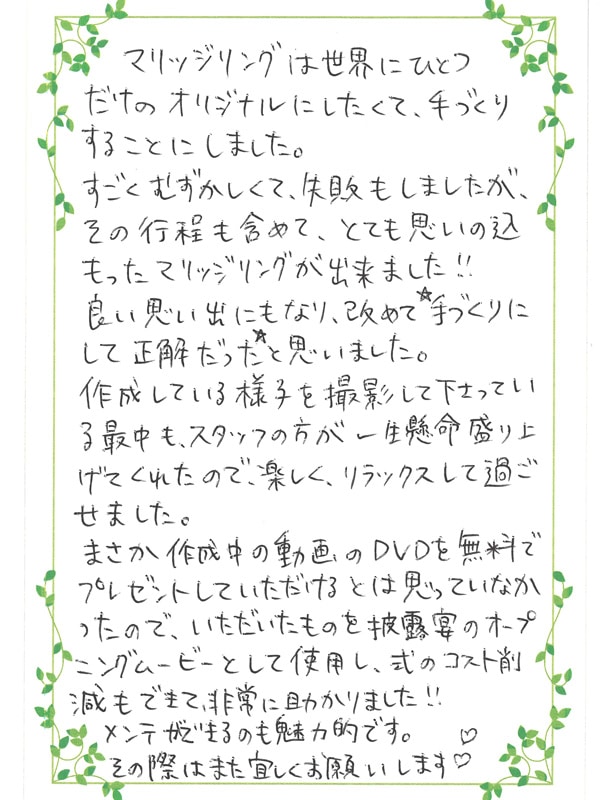 マリッジリングは世界にひとつ
だけのオリジナルにしたくて、手づくり
することにしました。
すごくむずかしくて、失敗もしましたが、
その行程も含めて、とても思いの込
もったマリッジリングが出来ました!!
良い思い出にもなり、改めて☆手づくりに
して正解だった☆と思いました。
作成している様子を撮影して下さってい
る最中も、スタッフの方が一生懸命盛り上
げてくれたので、楽しく、リラックスして過ご
せました。
まさか作成中の動画のDVDを無料で
プレゼントしていただけるとは思っていなか
ったので、いただいたものを披露宴のオープ
ニングムービーとして使用し、式のコスト削
減もできて、非常に助かりました!!
メンテができるのも魅力的です。♡
その際はまた宜しくお願いします♡